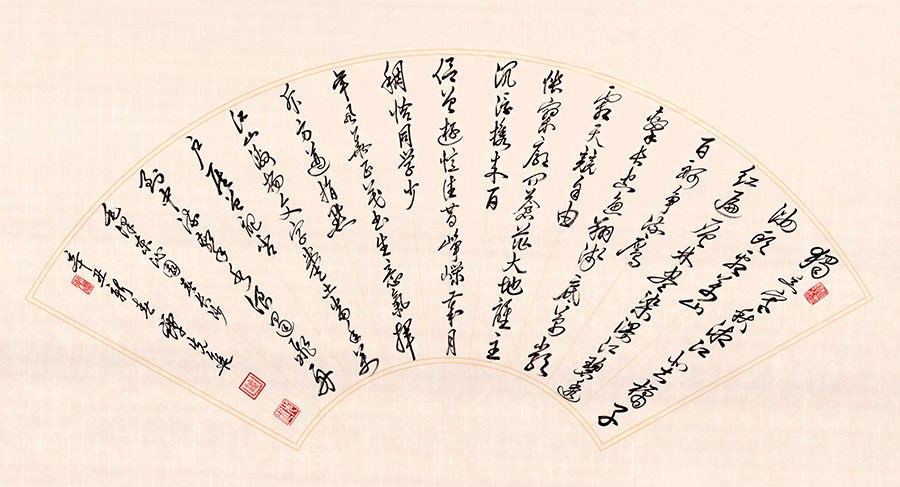 獨立寒秋湘江北去橘子
洲头看萬山
红遍层林尽染漫江碧透
百舸争流鹰
擊长空鱼翔浅底萬類
霜天競自由
怅寥廓问苍茫大地谁主
沉浮携来百
侣曾遊忆往昔峥嵘岁月
稠恰同学少
年风華正茂书生意氣挥
斥方遒指点
江山激扬文字粪土當年萬
户侯曾记否
到中流擊水浪遏飛舟
毛泽东沁园春长沙
辛丑新春